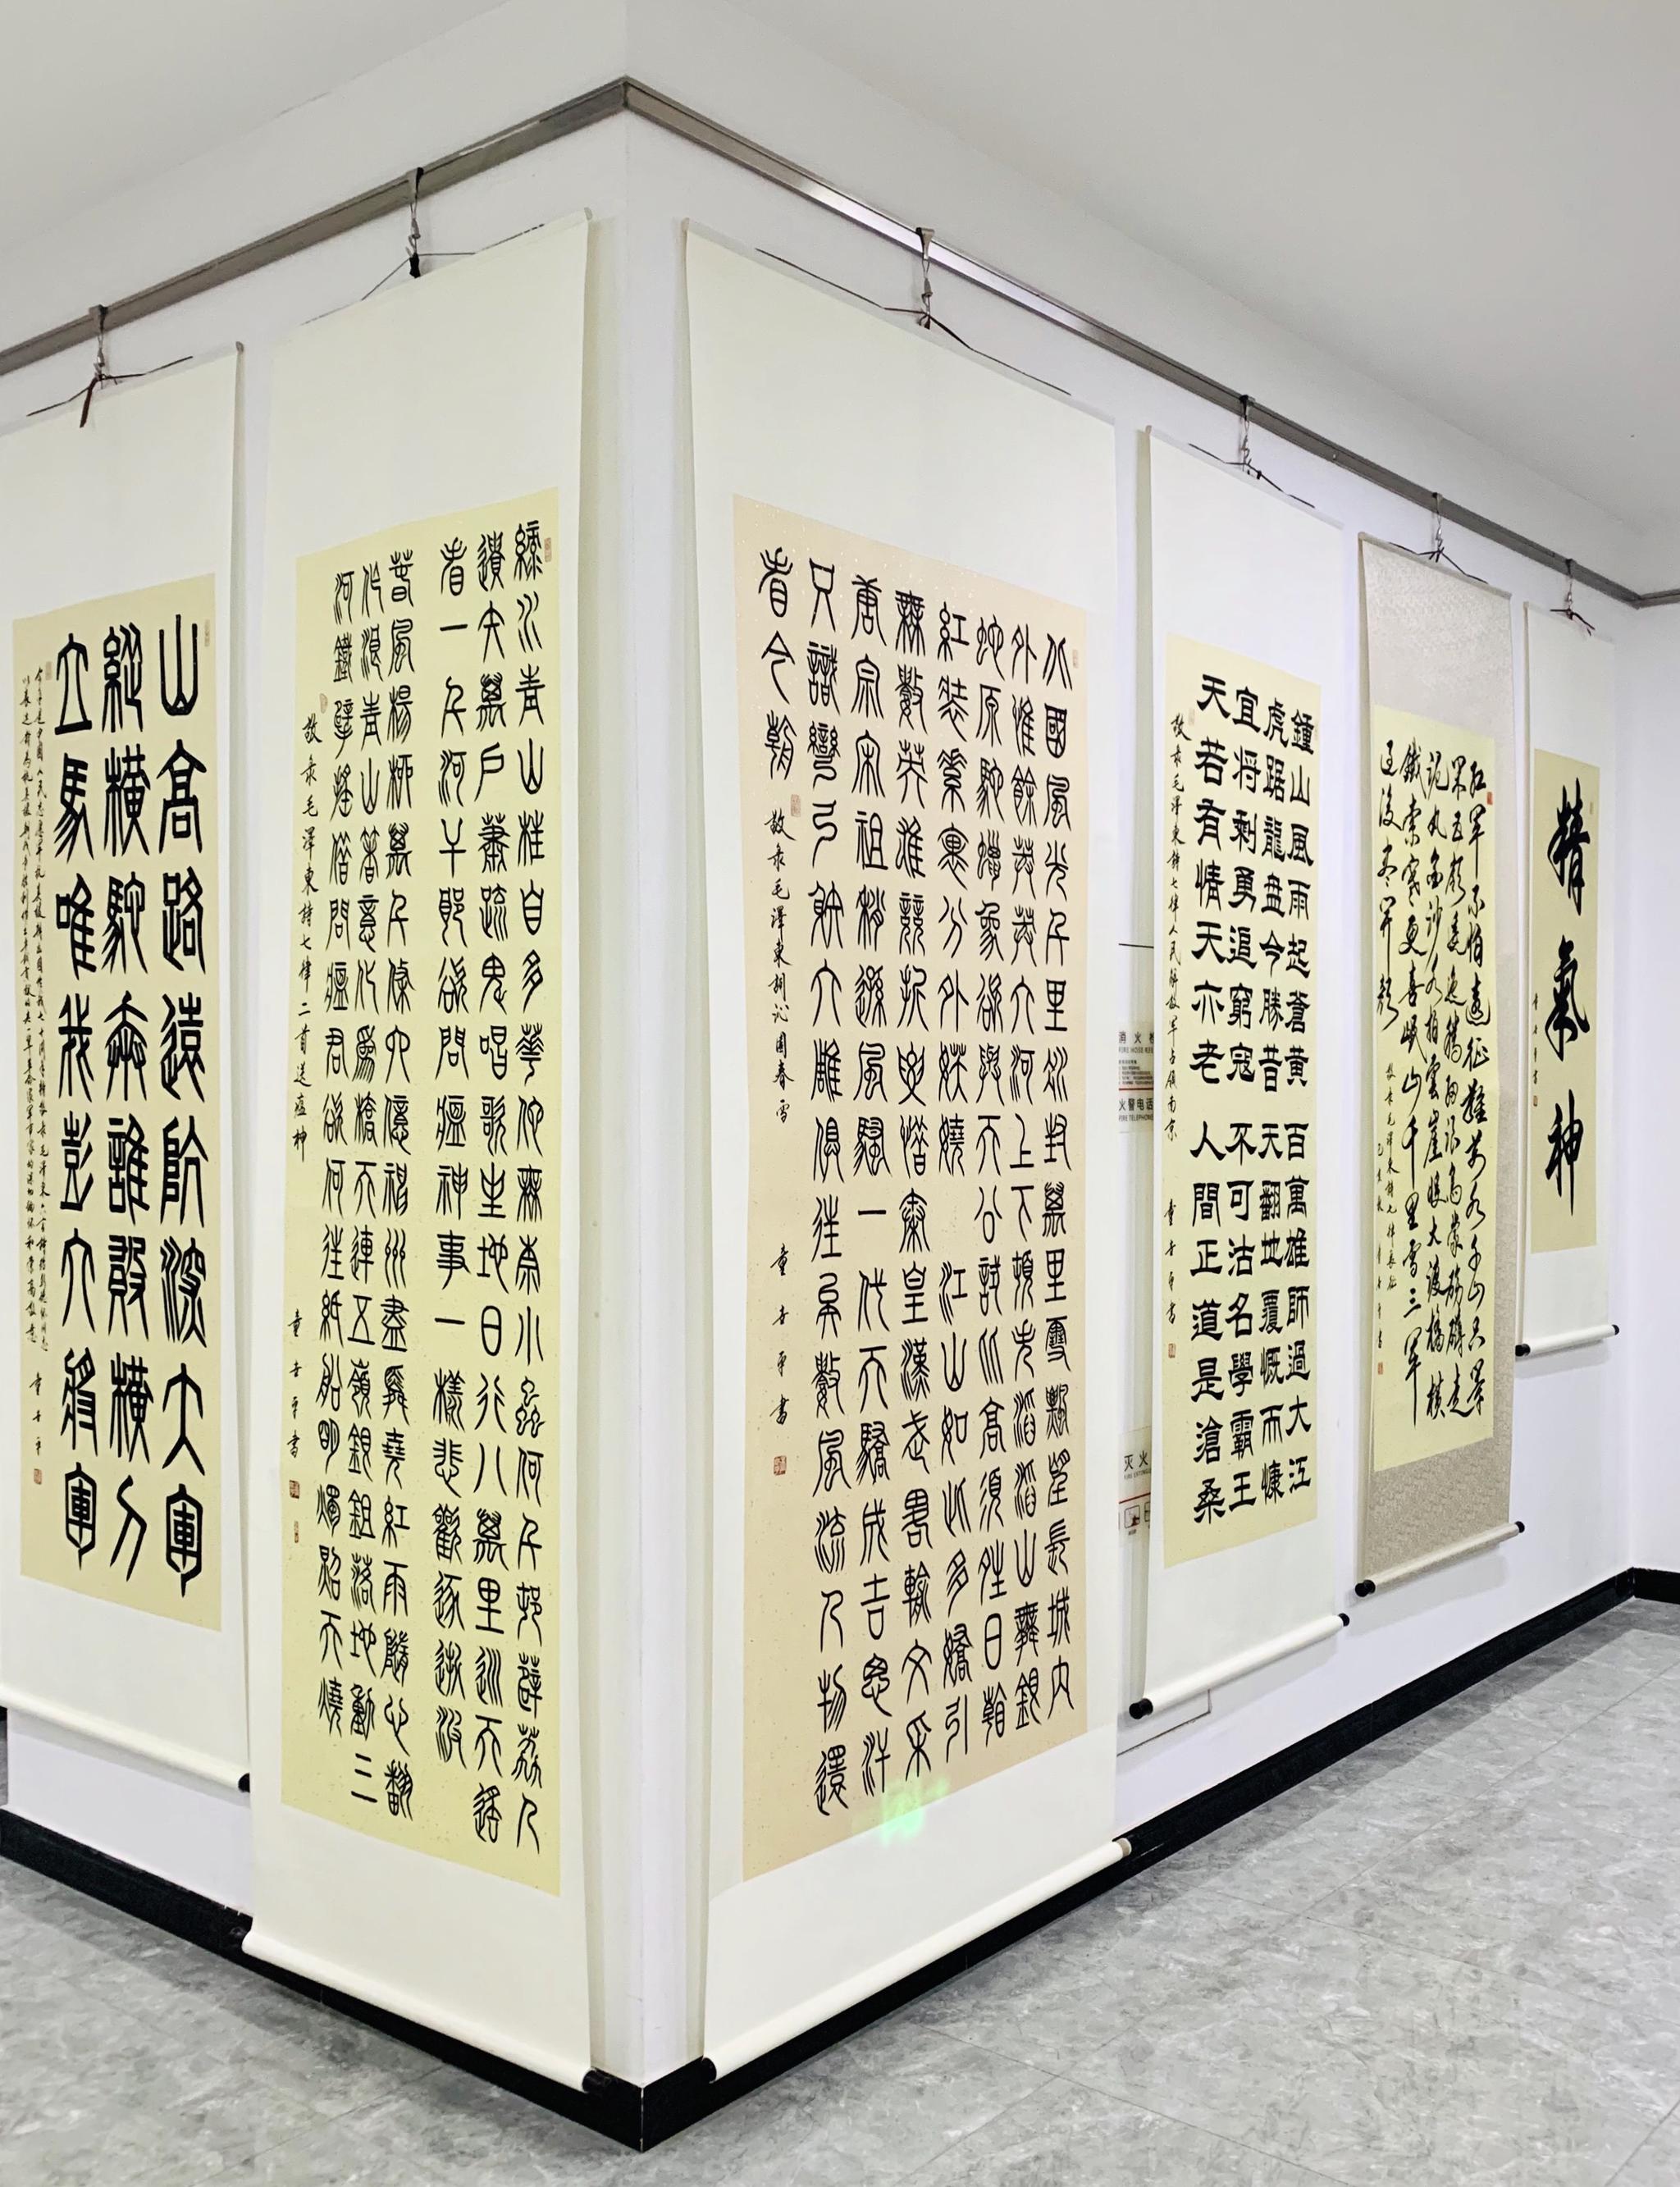 山高路遠阬深大軍
縱橫馳奔誰敢橫刀
立馬唯我彭大將軍
綠水青山枉自多華佗無奈小蟲何千邨薜荔人
遺矢萬戶蕭疏鬼唱歌坐地日行八萬里巡天遙
看一千河牛郎欲問瘟神事一樣悲歡逐逝波
春風楊柳萬千條六億神州盡舜堯紅雨隨心翻
作浪青山著意化爲橋天連五嶺銀鉏落地動三
河鐵臂搖借問瘟君欲何往紙船明燭照天燒
敬录毛澤東詩七律二首送瘟神
童吉平書
北國風光千里冰封萬里雪飄望長城內
外惟餘莽莽大河上下頓失滔滔山舞銀
蛇原馳蠟象欲與天公試比高須晴日看
紅裝素裹分外妖嬈 江山如此多嬌引
無數英雄競折腰惜秦皇漢武略輸文采
唐宗宋祖稍遜風騷一代天驕成吉思汗
只識彎弓射大雕俱往矣數風流人物還
看今朝
敬录毛澤東詞沁園春雪
童吉平書
鍾山風雨起蒼黃 百萬雄師過大江
虎踞龍盘今勝昔 天翻地覆慨而慷
宜將剩勇追窮寇 不可沽名學霸王
天若有情天亦老 人間正道是滄桑
敬录毛澤東詩七律人民解放軍占領南京
童吉平書
紅軍不怕遠征難萬水千山只等
閑五嶺逶迤騰細浪烏蒙磅礴走
泥丸金沙水拍雲崖暖大渡橋橫
鐵索寒更喜岷山千里雪三軍
過後盡開顏
敬录毛澤東詩七律長征
精氣神
消火栓
火警电话
FIRE TELEPHONE
灭火